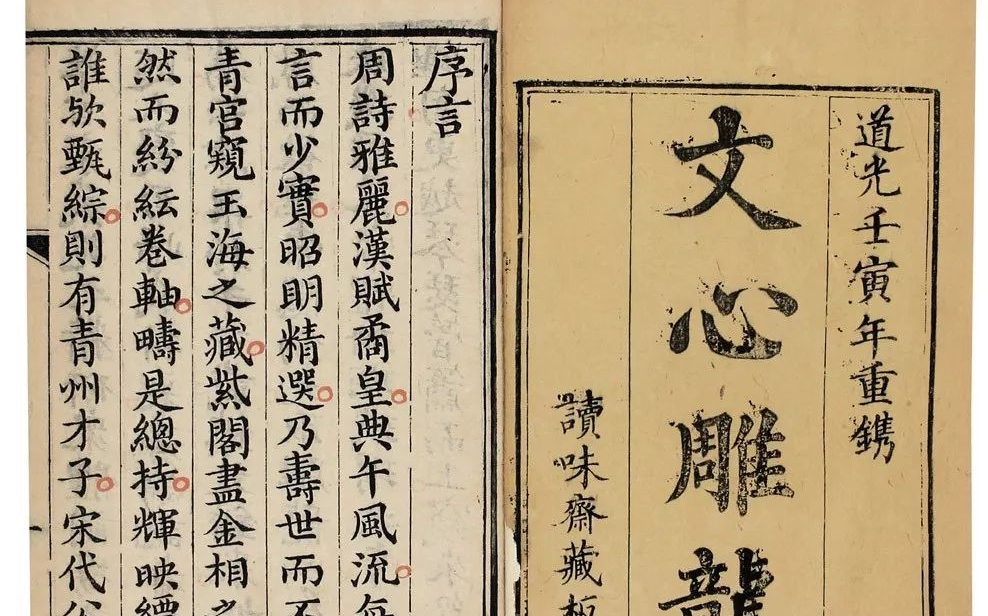 道光壬寅年重鐫
文心雕龍
讀味齋藏板
序言
周詩雅麗漢賦矞皇典午風流每
言而少實昭明精選乃壽世而不
青宮窺玉海之藏紫閣盡金相之
然而紛紜卷軸疇是總持輝映縹
誰欤甄綜則有青州才子宋代